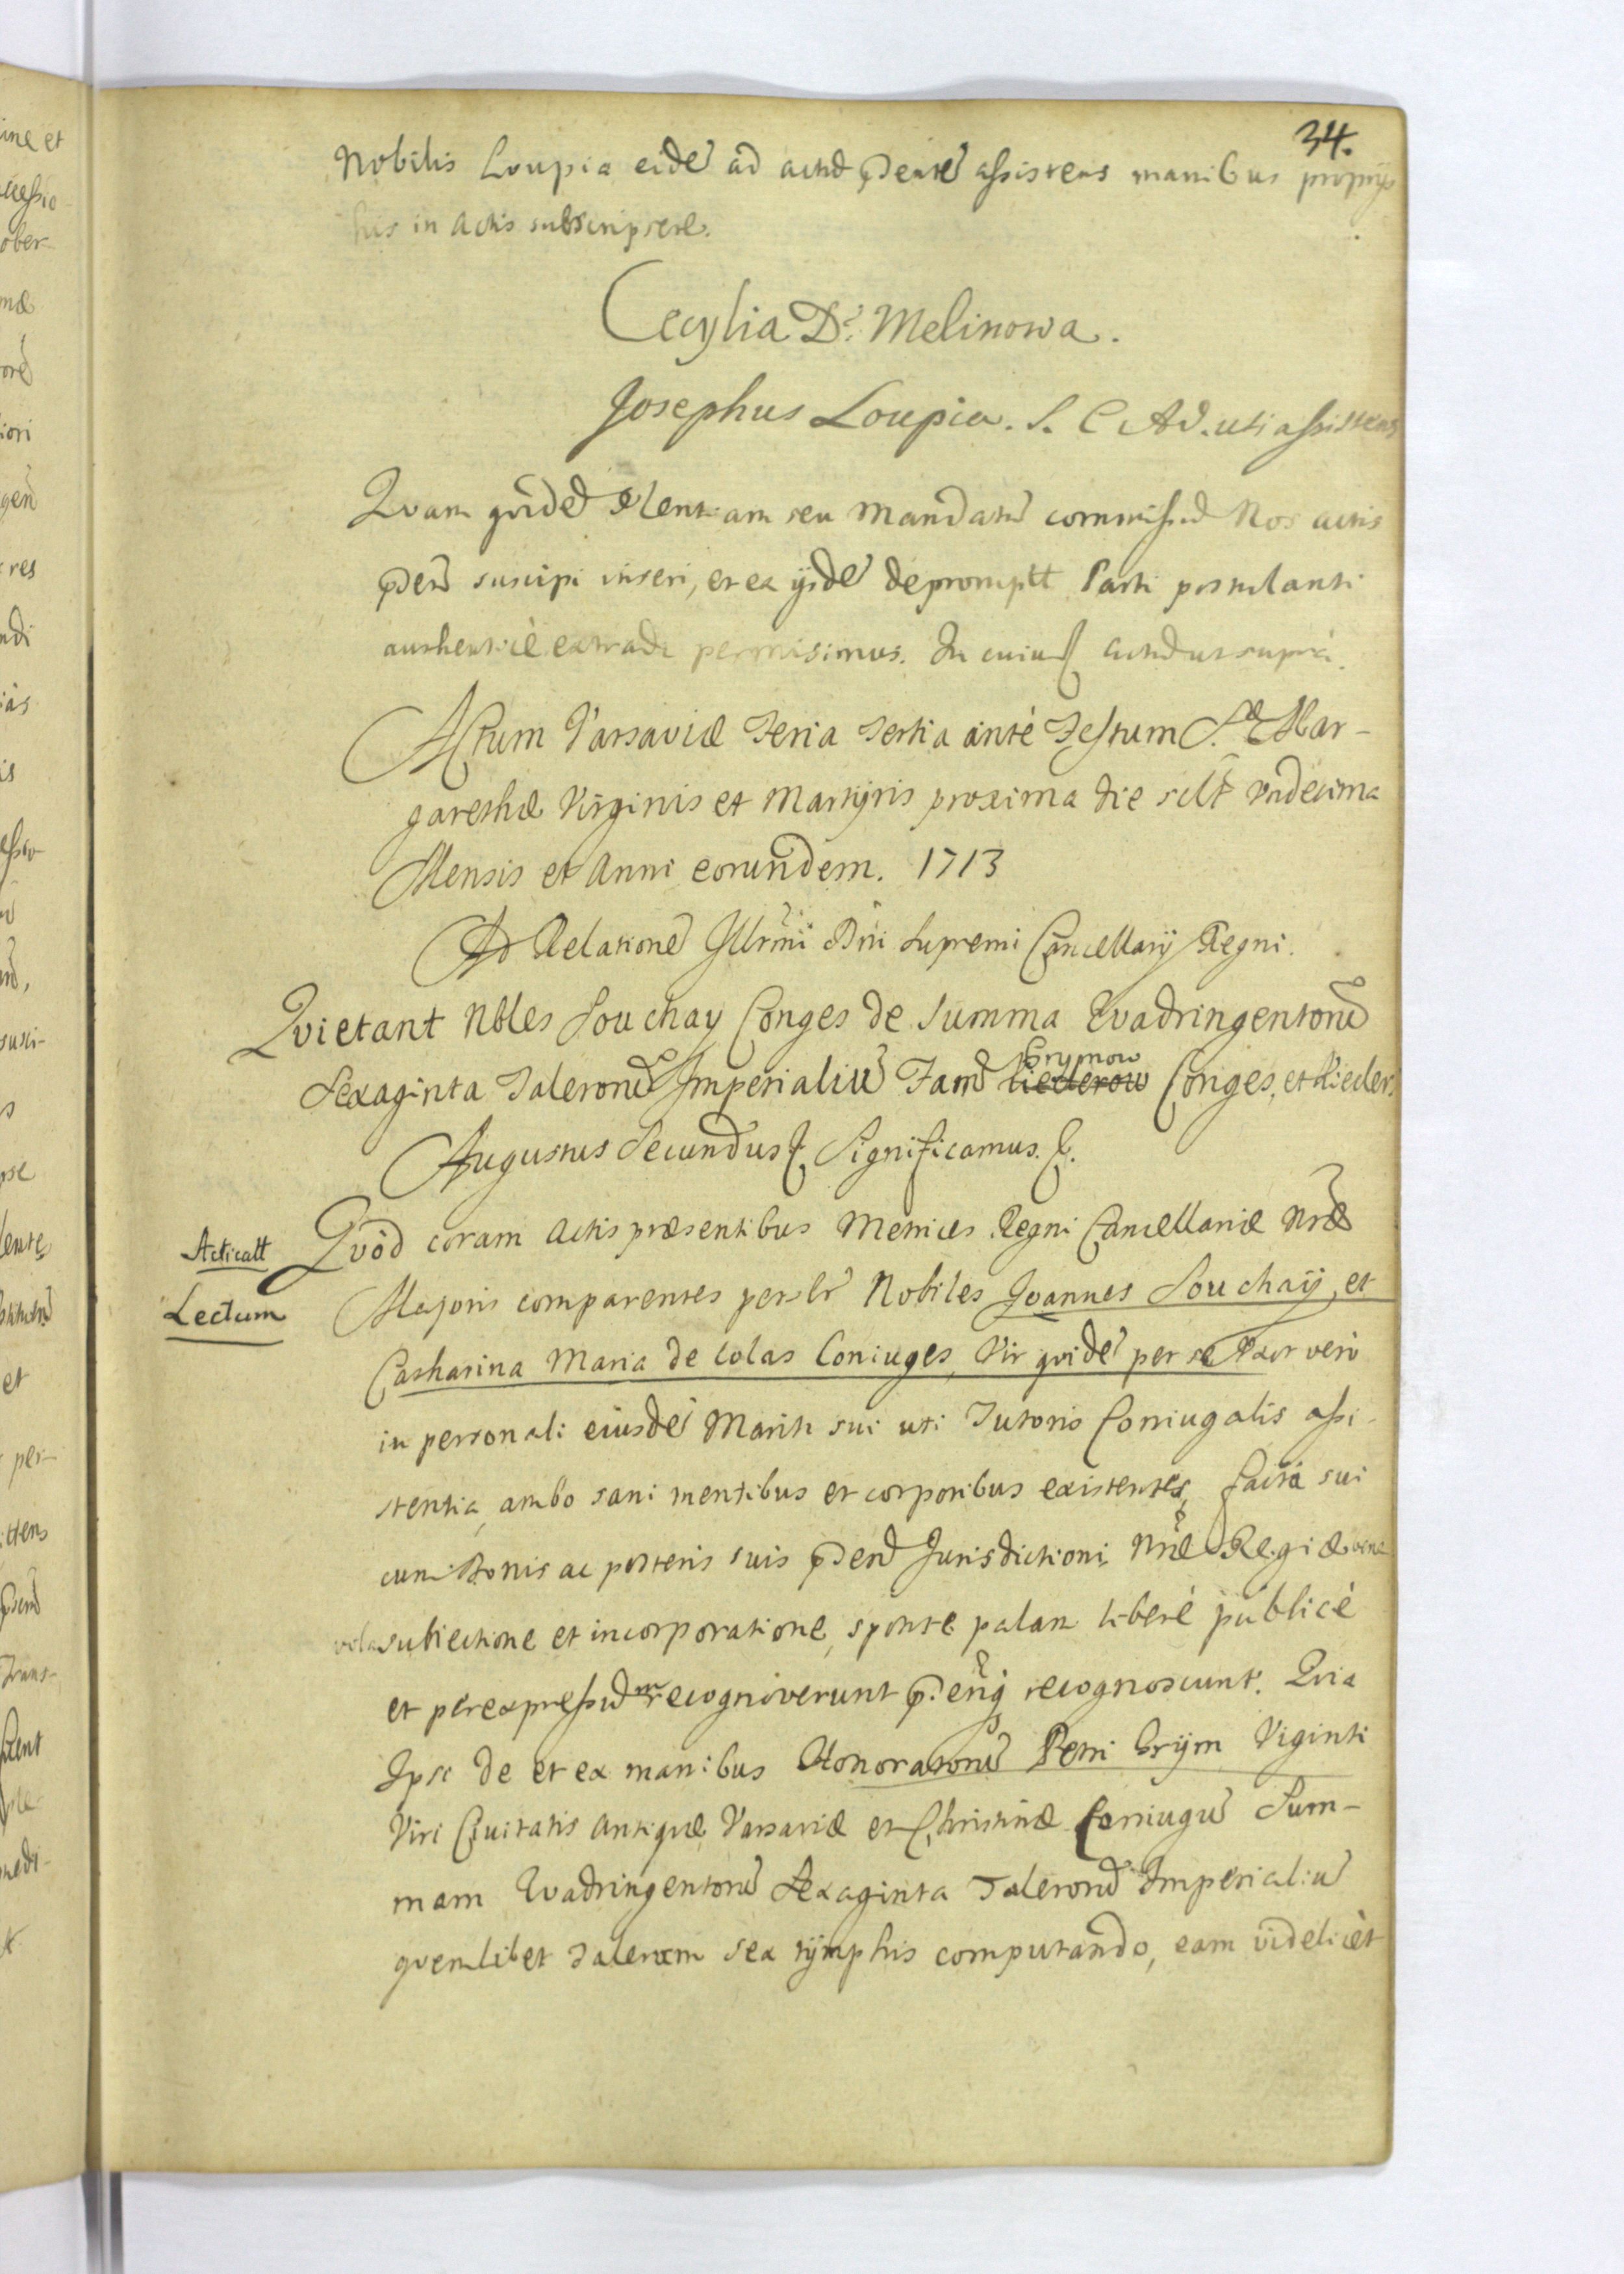 34.
Nobilis Loupia eidē ad actū p̄dentē assistens manibus proprijs
his in Actis subscripsere.
Cecylia D. Melinowa.
Josephus Loupia. S. C Ad. uti assistens
Qvam qvidē plenam seu Mandatū commissū Nos actis
p̄den̄ suscipi inseri, et ex ijsdē depromptt Parti postulanti
authenticè extradi permisimus. In cuius Actū ut suprà.
Actum Varsaviæ Feria Tertia antè Festum S.æ Mar-
garethæ Virginis et Martyris proxima die scilt Vndecima
Mensis et Anni eorundem. 1713
Ad Relationē Illrmi Dni Supremi Cancellarij Regni.
Qvietant Nbles Souchay Conges de Summa Qvadringentorū
Sexaginta Talerorū Imperialiū Famū Liederow Brymow Conges, et Lieder.
Augustus Secundus Significamus.
Acticatt
Qvòd coram Actis præsentibus Metrices Regni Cancellariæ Nræ
Lectum
Majoris comparentes persltr Nobiles Joannes Souchaÿ, et
Catharina Maria de Colas Coniuges, Vir qvidē per se Uxor verò
in personali eiusdē Mariti sui uti Tutoris Coniugalis assi-
stentia, ambo sani mentibus et corporibus existentes, factà sui
cum Bonis ac posteris suis p̄den̄ Jurisdictioni Nræ Regiæ bene
vola subiectione et incorporatione, sponte palam liberè publicè
et per expressū recognoverunt p̄.enq recognoscunt. Qvia
Ipsi de et ex manibus Honoratorū Petri Brÿm Viginti
Viri Civitatis Antiqvæ Varsaviæ et Christinæ Coniugū Sum-
mam Qvadringentorū Sexaginta Talerorū Imperialiū
qvemlibet Talerum sex tymphis computando, eam videlicèt